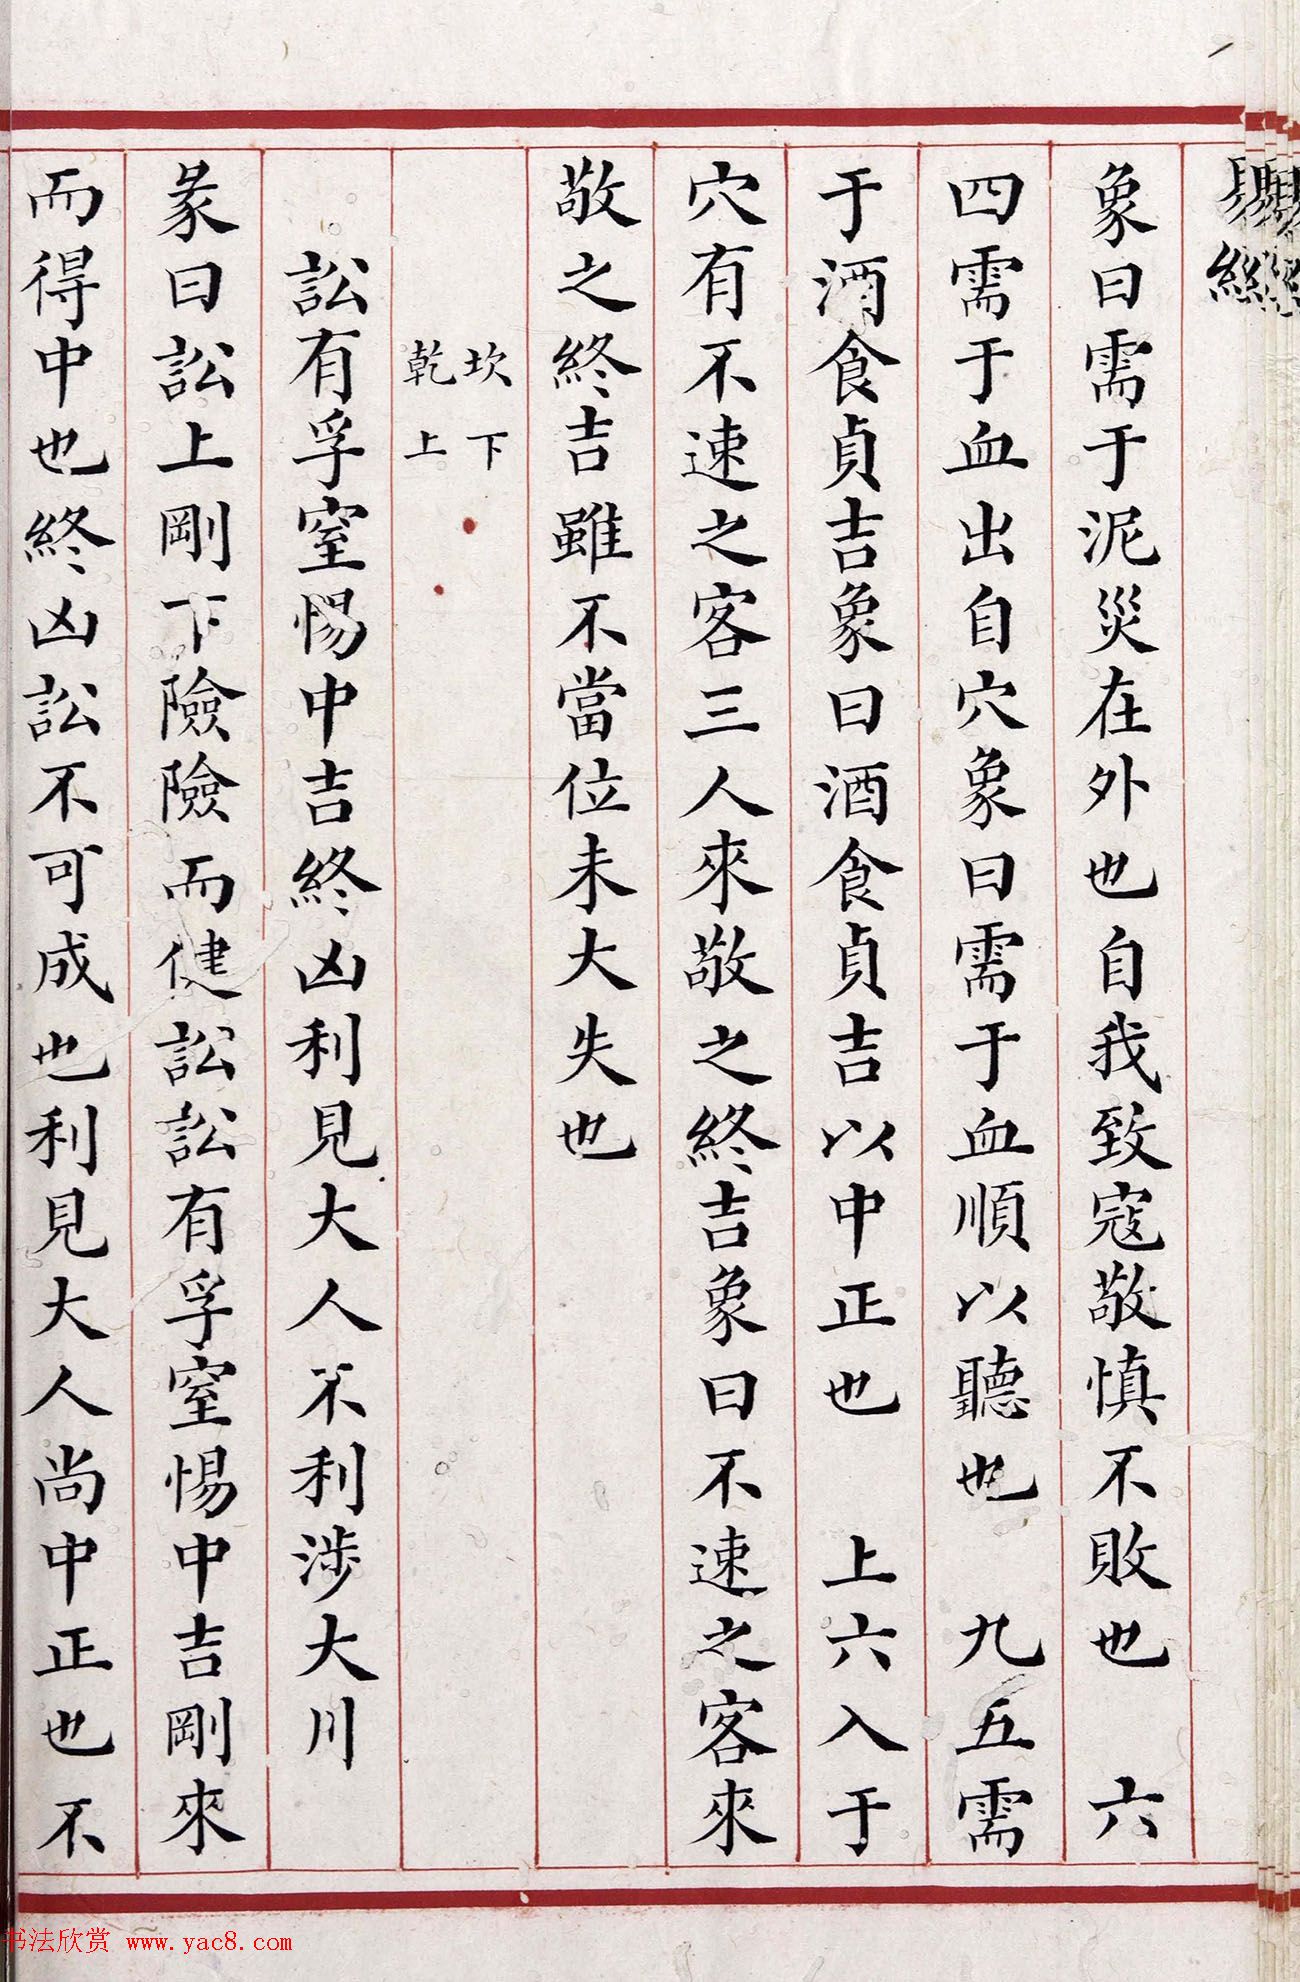 易經
象曰需于泥災在外也自我致寇敬慎不敗也　六
四需于血出自穴象曰需于血順以聽也　九五需
于酒食貞吉象曰酒食貞吉以中正也　上六入于
穴有不速之客三人來敬之終吉象曰不速之客來
敬之終吉雖不當位未大失也
坎下
乾上
訟有孚窒惕中吉終凶利見大人不利涉大川
彖曰訟上剛下險險而健訟訟有孚窒惕中吉剛來
而得中也終凶訟不可成也利見大人尚中正也不
书法欣赏 www.yac8.com